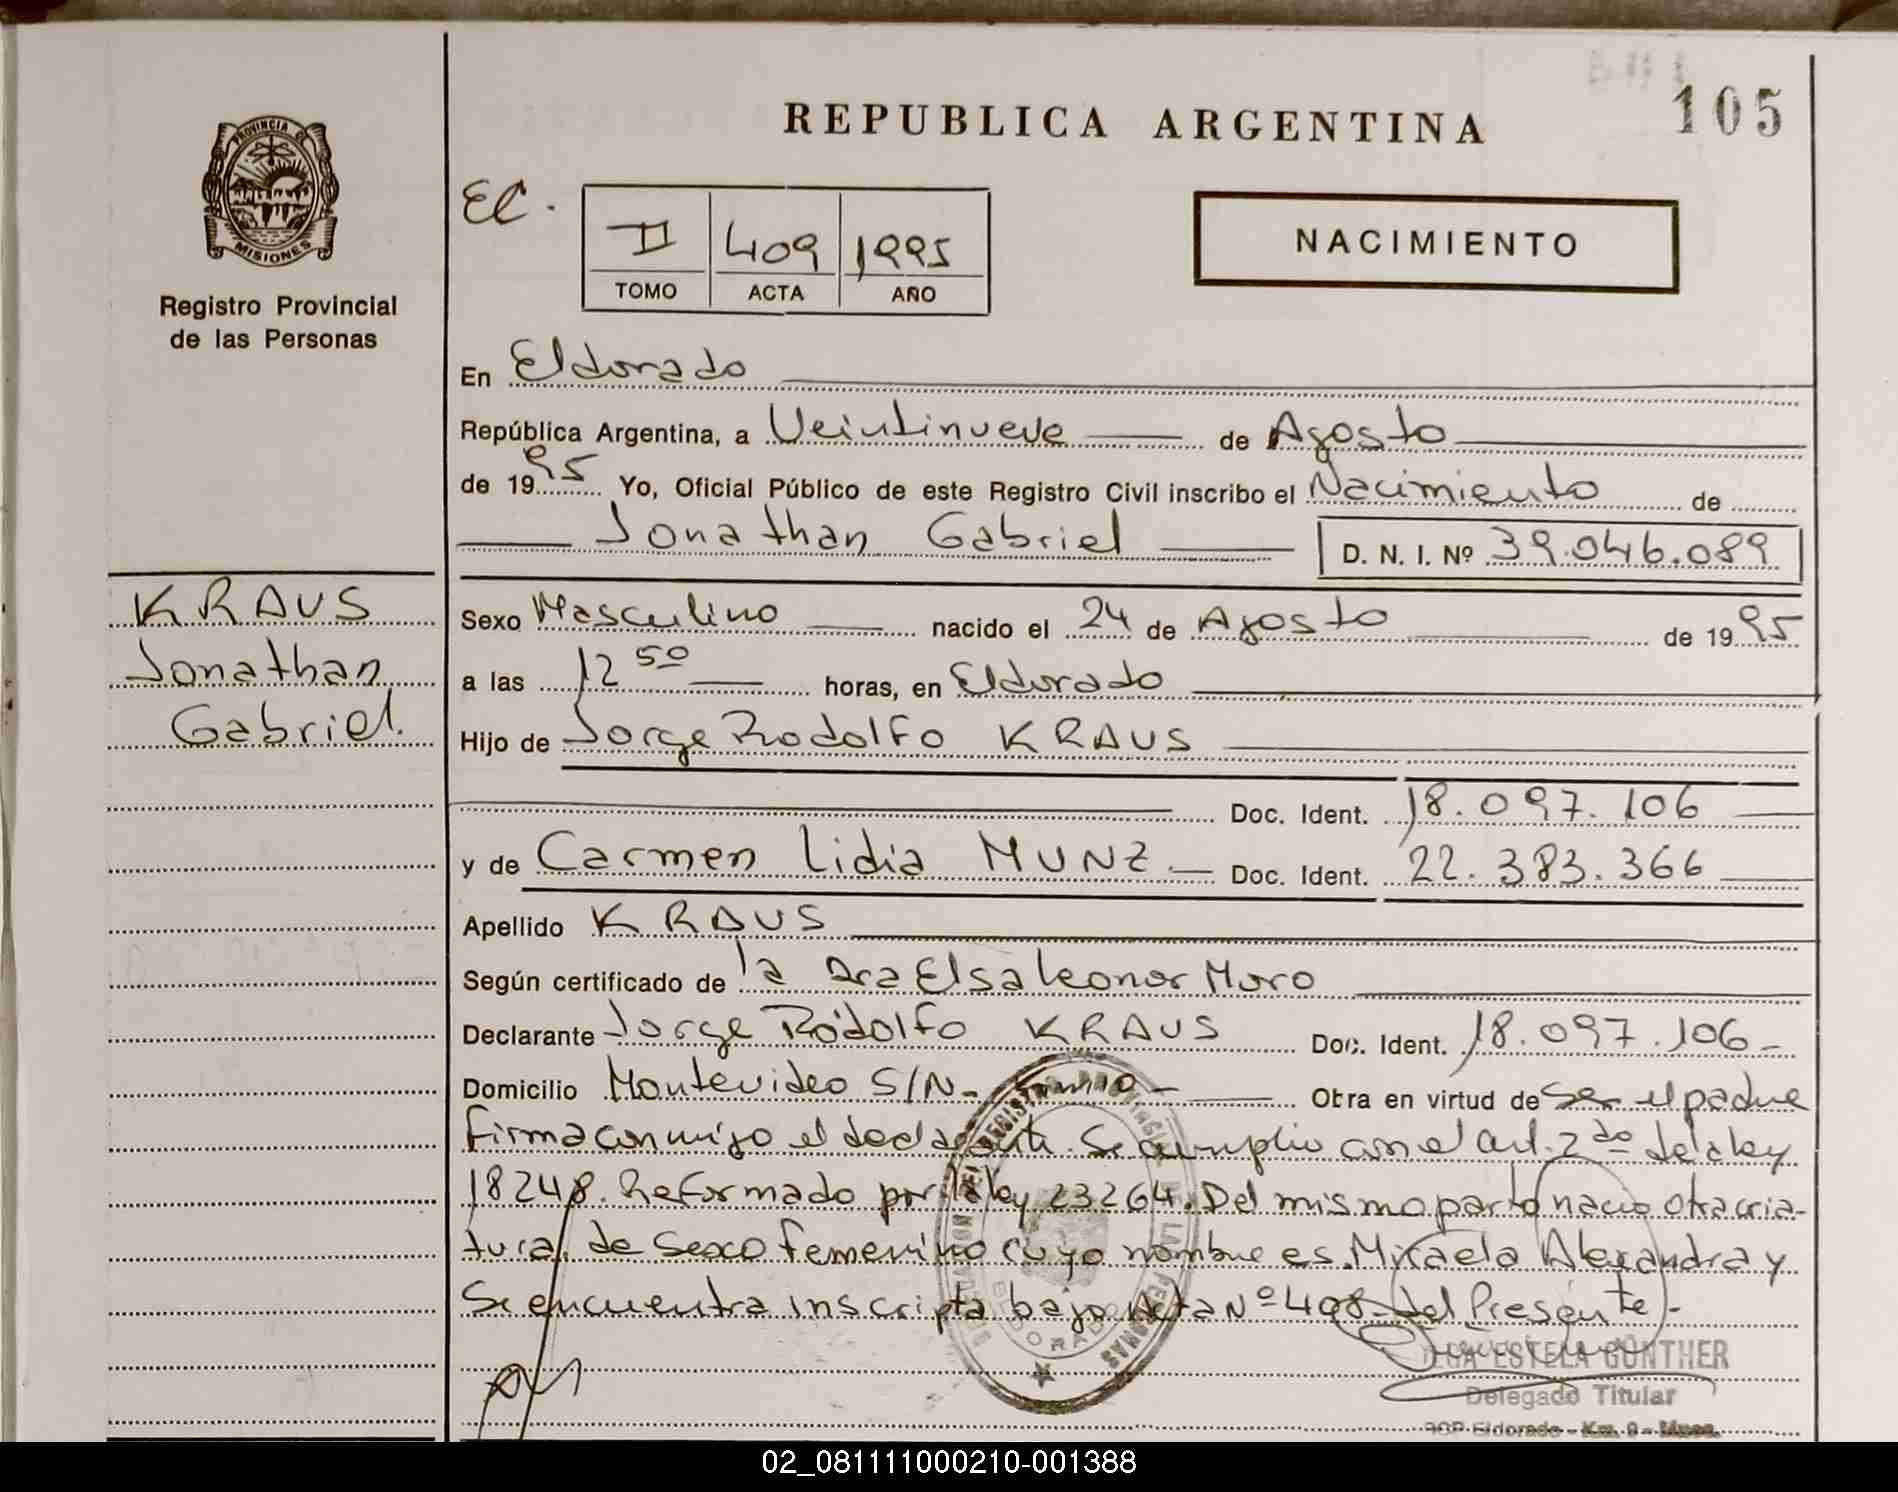 105
REPUBLICA ARGENTINA
PROVINCIA D
MISIONES
Registro Provincial
de las Personas
EC.
II 409 1995
TOMO ACTA AÑO
NACIMIENTO
En Eldorado
República Argentina, a Veintinueve de Agosto
de 1995 Yo, Oficial Público de este Registro Civil inscribo el Nacimiento de
Jonathan Gabriel D. N. I. Nº 39.046.089
KRAUS
Jonathan
Gabriel.
Sexo Masculino nacido el 24 de Agosto de 1995
a las 12 50 horas, en Eldorado
Hijo de Jorge Rodolfo KRAUS
Doc. Ident. 18.097.106
y de Carmen Lidia MUNZ Doc. Ident. 22.383.366
Apellido KRAUS
Según certificado de la Dra Elsa Leonor Moro
Declarante Jorge Rodolfo KRAUS Doc. Ident. 18.097.106
Domicilio Montevideo S/N- Otra en virtud de ser el padre
firma conmigo el declarante. Se cumplio con el art. 2do de la ley
18248. Reformado por la ley 23264. Del mismo parto nacio otra cria-
tura, de Sexo femenino cuyo nombre es Micaela Alexandra y
Se encuentra inscripta bajo Acta Nº 408- del Presente.-
ESTELA GÜNTHER
Delegado Titular
Eldorado - Km. 9 - Mnes.
02_081111000210-001388